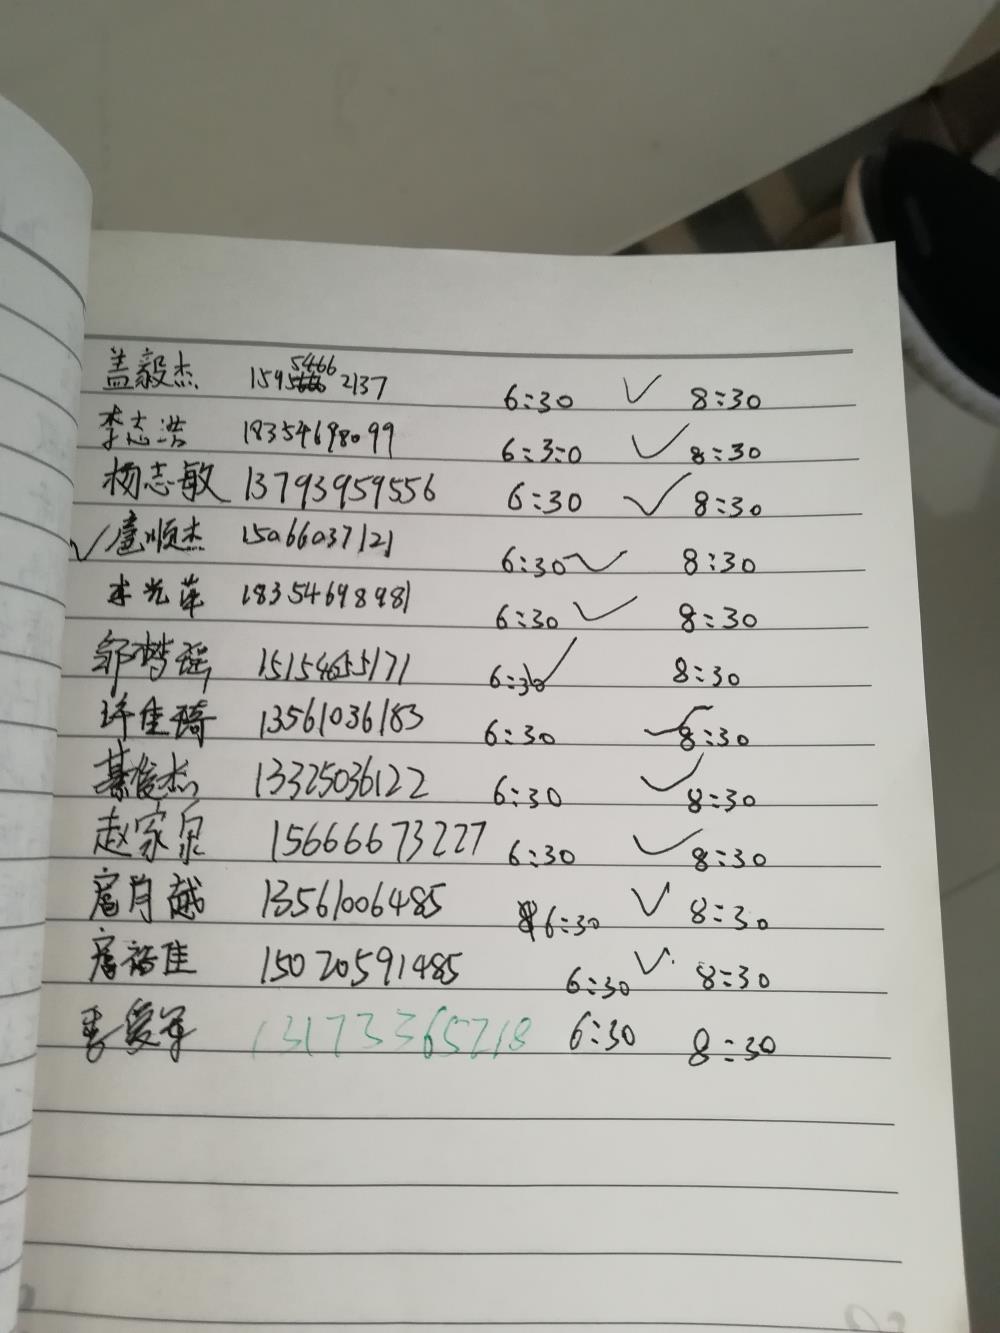 盖毅杰 15954662137 6:30 ✓ 8:30
李志浩 18354698099 6:3:0 ✓ 8:30
杨志敏 13793959556 6:30 ✓ 8:30
✓ 扈顺杰 15066037121 6:30 ✓ 8:30
李光萍 18354698981 6:30 ✓ 8:30
邹梦瑶 15154655171 6:30 ✓ 8:30
许佳琦 13561036183 6:30 ✓ 8:30
綦俊杰 13325036122 6:30 ✓ 8:30
赵家泉 15666673227 6:30 ✓ 8:30
扈月越 13561006485 6:30 ✓ 8:30
扈裕佳 15020591485 6:30 ✓ 8:30
李爱军 13173365218 6:30 8:30